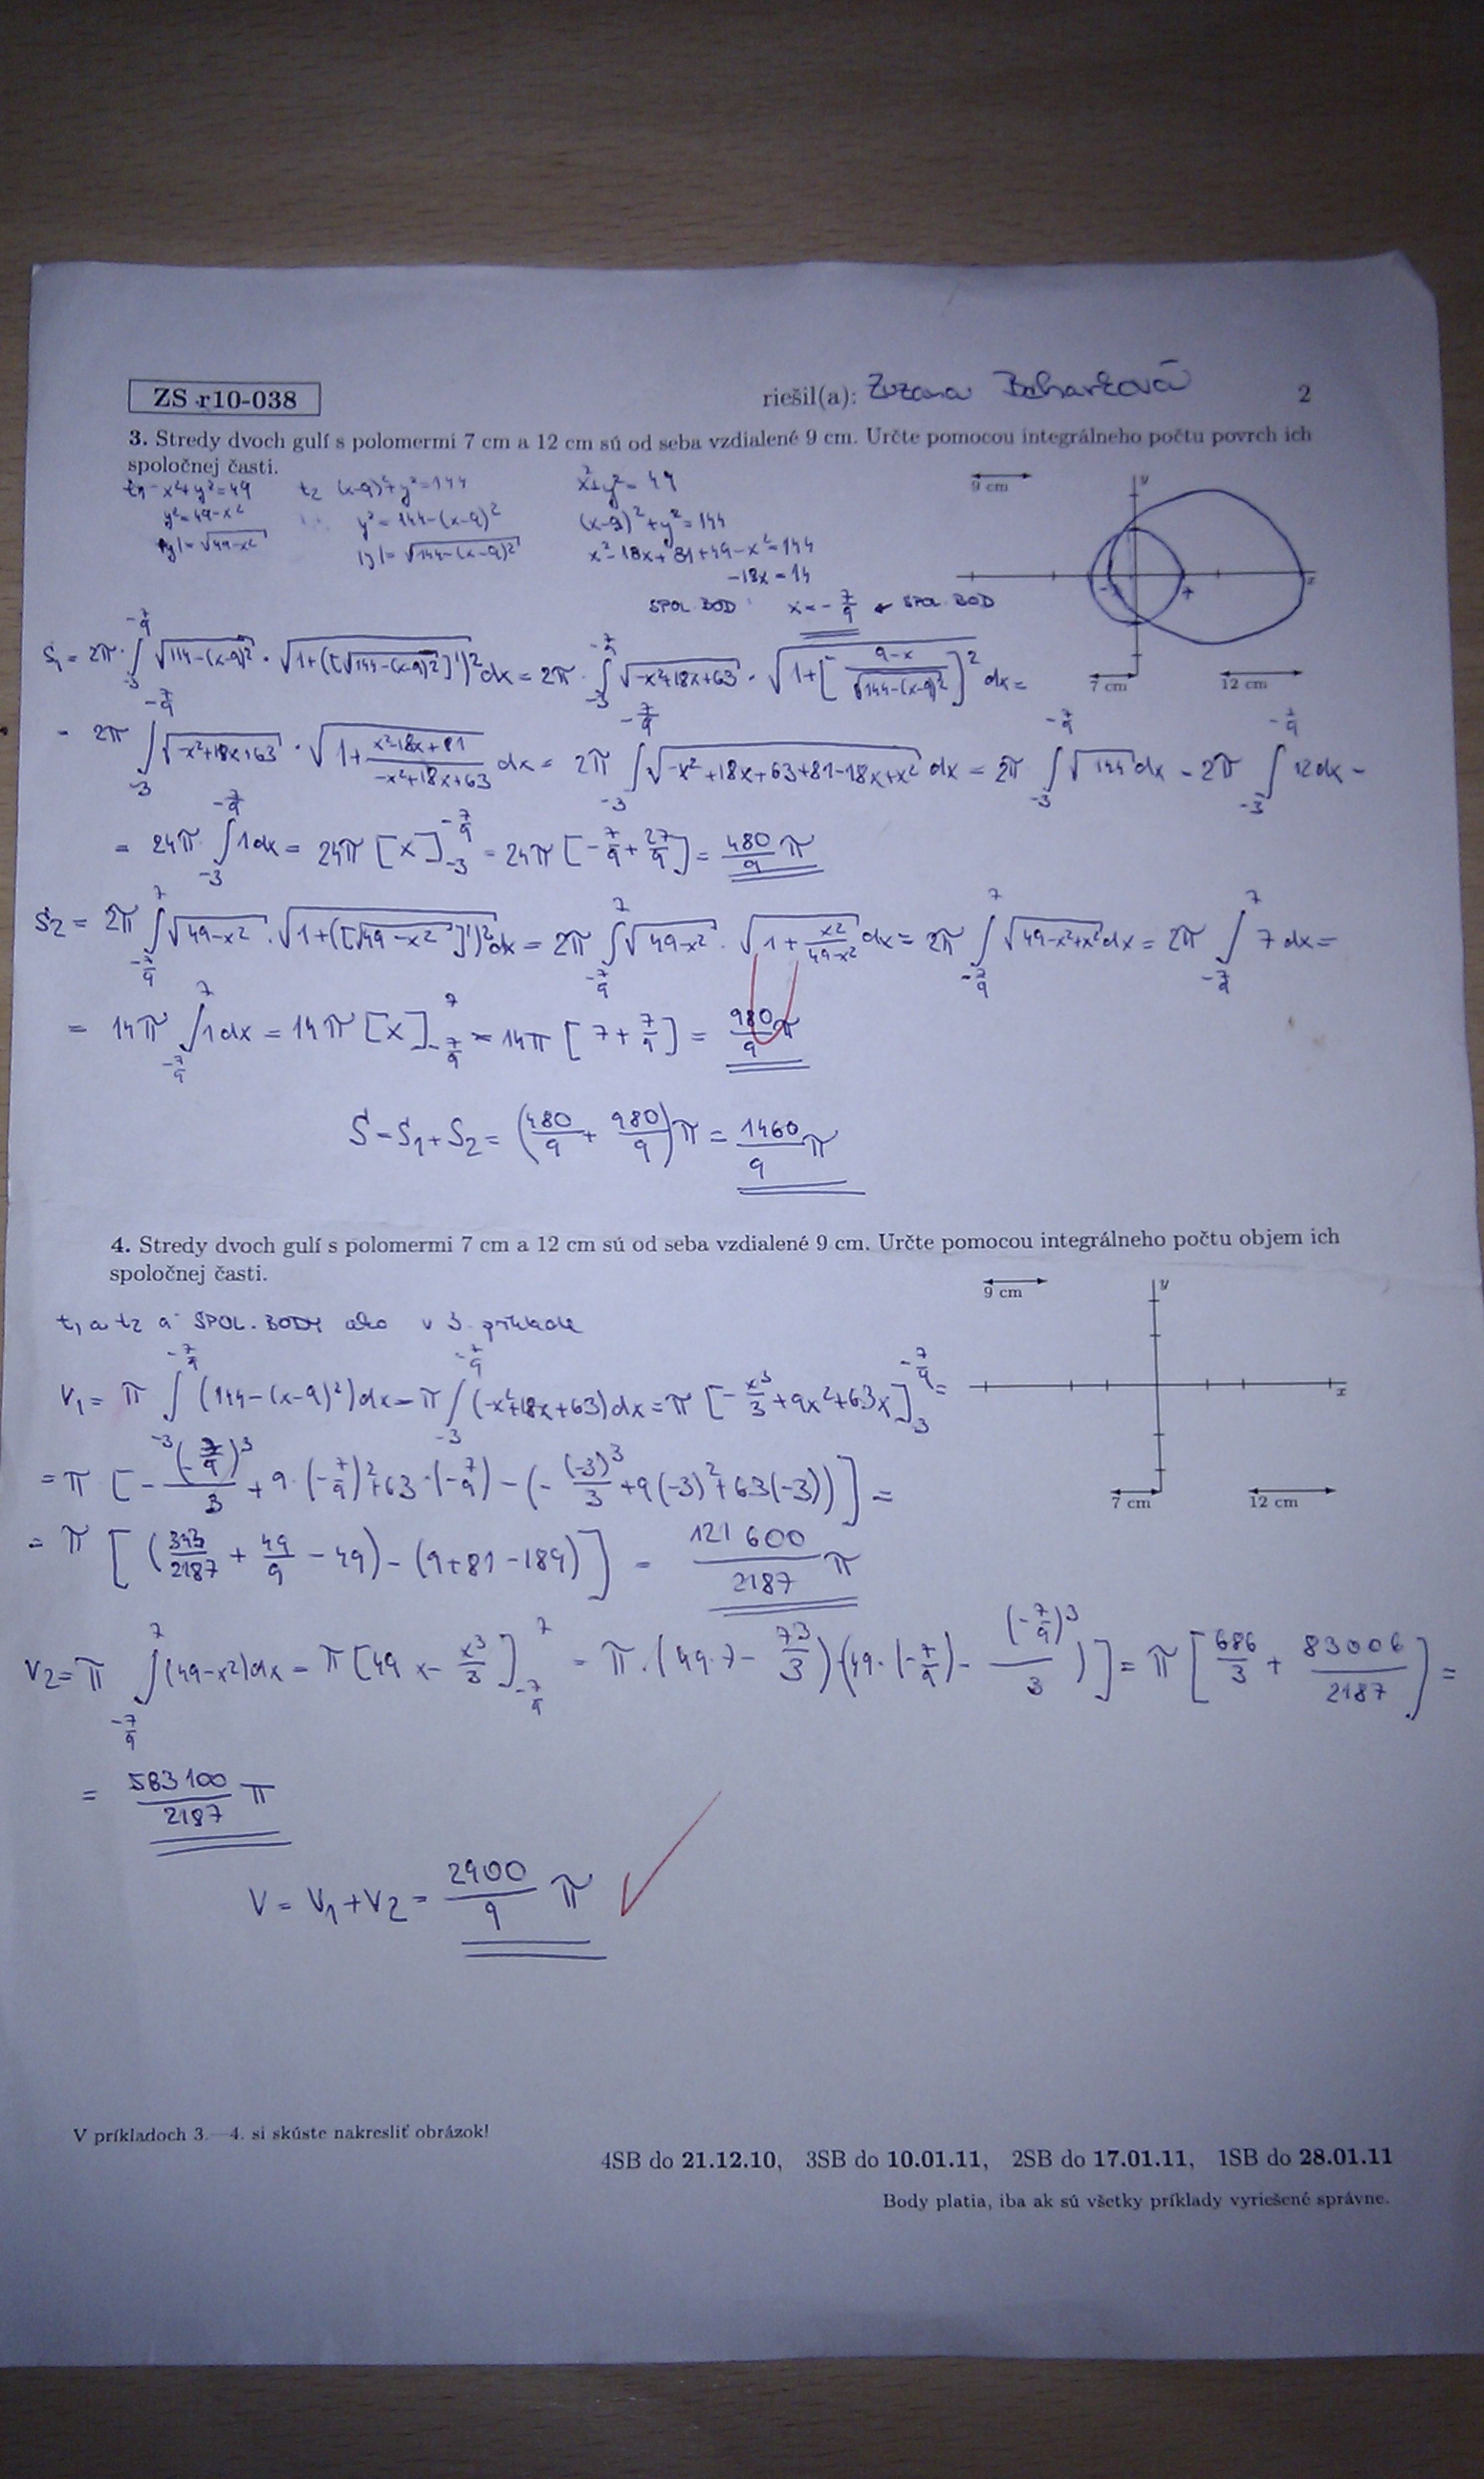 ZS r10-038 riešil(a): Zuzana 2
3. Stredy dvoch gulí s polomermi 7 cm a 12 cm sú od seba vzdialené 9 cm. Určte pomocou integrálneho počtu povrch ich
spoločnej časti.
x²+y²=49 t₂ (x-9)²+y²=144 x²+y²=49
y²=49-x² y²=144-(x-9)² (x-9)²+y²=144
|y|=√(49-x²) |y|=√(144-(x-9)²) x²-18x+81+49-x²=144
-18x=14
SPOL. BOD x=-7/9 ← SPOL. BOD
9 cm
y
x
-3 7
7 cm 12 cm
S₁=2π·∫_{-3}^{-7/9} √(144-(x-9)²)·√(1+([√(144-(x-9)²)]')²)dx=2π·∫_{-3}^{-7/9} √(-x²+18x+63)·√(1+[(9-x)/√(144-(x-9)²)]²)dx=
= 2π ∫_{-3}^{-7/9} √(-x²+18x+63)·√(1+(x²-18x+81)/(-x²+18x+63)) dx = 2π ∫_{-3}^{-7/9} √(-x²+18x+63+81-18x+x²) dx = 2π ∫_{-3}^{-7/9} √144 dx = 2π ∫_{-3}^{-7/9} 12dx =
= 24π ∫_{-3}^{-7/9} 1dx = 24π [x]_{-3}^{-7/9} = 24π [-7/9+27/9] = 480/9 π
S₂ = 2π ∫_{-7/9}^{7} √(49-x²)·√(1+([√(49-x²)]')²)dx = 2π ∫_{-7/9}^{7} √(49-x²)·√(1+x²/(49-x²)) dx = 2π ∫_{-7/9}^{7} √(49-x²+x²)dx = 2π ∫_{-7/9}^{7} 7dx =
= 14π ∫_{-7/9}^{7} 1dx = 14π [x]_{-7/9}^{7} = 14π [7+7/9] = 980/9 π
S=S₁+S₂=(480/9+980/9)π=1460/9 π
4. Stredy dvoch gulí s polomermi 7 cm a 12 cm sú od seba vzdialené 9 cm. Určte pomocou integrálneho počtu objem ich
spoločnej časti.
9 cm
y
x
7 cm 12 cm
t₁ a t₂ a SPOL. BODY ako v 3. príklade
V₁= π ∫_{-3}^{-7/9} (144-(x-9)²)dx=π ∫_{-3}^{-7/9} (-x²+18x+63)dx=π [-x³/3+9x²+63x]_{-3}^{-7/9}=
=π [-(-7/9)³/3+9·(-7/9)²+63·(-7/9)-(-(-3)³/3+9(-3)²+63(-3))]=
= π [(343/2187+49/9-49)-(9+81-189)] = 121600/2187 π
V₂=π ∫_{-7/9}^{7} (49-x²)dx=π [49x-x³/3]_{-7/9}^{7} = π·(49·7-7³/3)(49·(-7/9)-(-7/9)³/3)]=π [686/3+83006/2187]=
= 583100/2187 π
V=V₁+V₂=2900/9 π
V príkladoch 3.—4. si skúste nakresliť obrázok!
4SB do 21.12.10, 3SB do 10.01.11, 2SB do 17.01.11, 1SB do 28.01.11
Body platia, iba ak sú všetky príklady vyriešené správne.